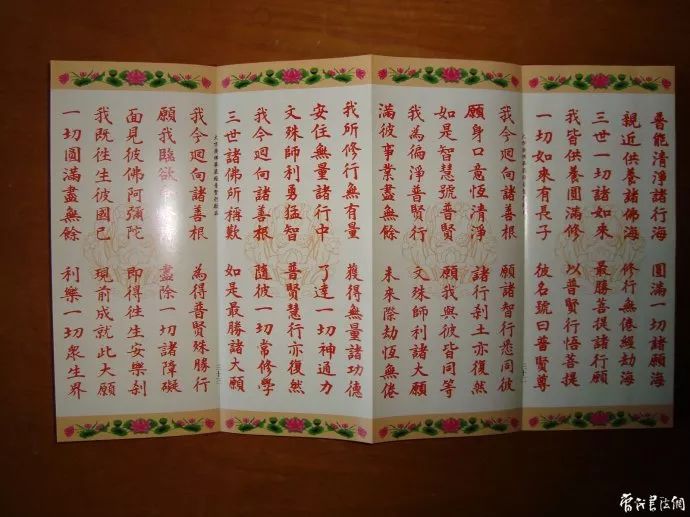 普能清淨諸行海 圓滿一切諸願海
親近供養諸佛海 修行無倦經劫海
三世一切諸如來 最勝菩提諸行願
我皆供養圓滿修 以普賢行悟菩提
一切如來有長子 彼名號曰普賢尊
我今迴向諸善根 願諸智行悉同彼
願身口意恆清淨 諸行剎土亦復然
如是智慧號普賢 願我與彼皆同等
我為徧淨普賢行 文殊師利諸大願
滿彼事業盡無餘 未來際劫恆無倦
我所修行無有量 獲得無量諸功德
安住無量諸行中 了達一切神通力
文殊師利勇猛智 普賢慧行亦復然
我今迴向諸善根 隨彼一切常修學
三世諸佛所稱歎 如是最勝諸大願
大方廣佛華嚴經普賢行願品
我今迴向諸善根 為得普賢殊勝行
願我臨欲 盡除一切諸障礙
面見彼佛阿彌陀 即得往生安樂剎
我既往生彼國已 現前成就此大願
一切圓滿盡無餘 利樂一切眾生界